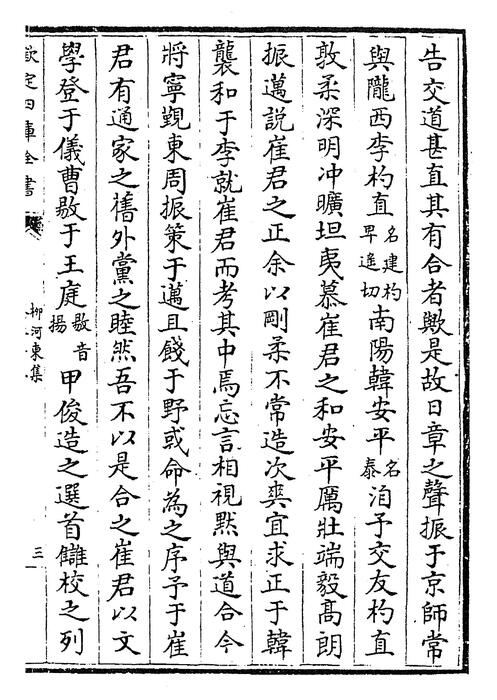 告交道甚直其有合者歟是故日章之聲振于京師常
與隴西李杓直名建杓卑遙切南陽韓安平名泰洎予交友杓直
敦柔深明冲曠坦夷慕崔君之和安平厲壯端毅髙朗
振邁説崔君之正余以剛柔不常造次爽宜求正于韓
襲和于李就崔君而考其中焉忘言相視黙與道合今
將寧覲東周振策于邁且餞于野或命為之序予于崔
君有通家之舊外黨之睦然吾不以是合之崔君以文
學登于儀曹敭于王庭敭音揚甲俊造之選首讎校之列
欽定四庫全書
柳河東集
三